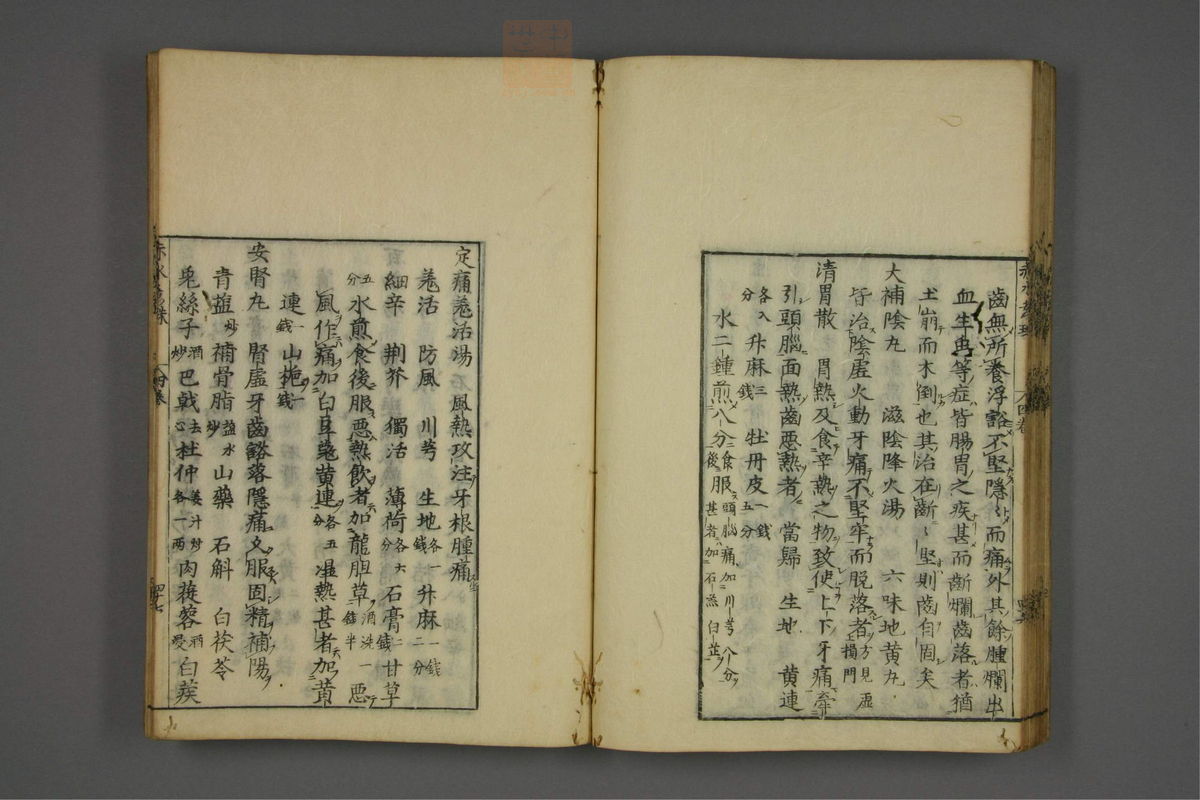 齒無所養浮豁不堅隱〻而痛外其餘腫爛出
血生等症皆腸胃之疾甚而齗爛齒落者猶
土崩而木倒也其治在齗〻堅則齒自固矣
大補陰丸　滋陰降火湯　六味地黃丸
皆治陰虛火動牙痛不堅牢而脫落者方見虛損門
清胃散　胃熱及食辛熱之物致使上下牙痛牽
引頭腦面熱齒惡熱者　當歸　生地　黃連
各八分　升麻三錢　牡丹皮一錢五分
水二鍾煎八分食後服頭腦痛加川芎八分甚者加石羔白芷
定痛羗活湯　風熱攻注牙根腫痛
羗活　防風　川芎　生地各一錢　升麻一錢二分
細辛　荆芥　獨活　薄荷各六分　石膏二錢　甘草
五分　水煎食後服惡熱飲者加龍胆草酒洗一錢半　惡
風作痛加白豆蔲黃連各五分　濕熱甚者加黃
連一錢　山梔一錢
安腎丸　腎虛牙齒豁落隱痛久服固精補陽
青鹽炒　補骨脂鹽水炒　山藥　石斛　白茯苓
兎絲子酒炒　巴戟去心　杜仲姜汁炒各一兩　肉蓯蓉酒浸　白蒺